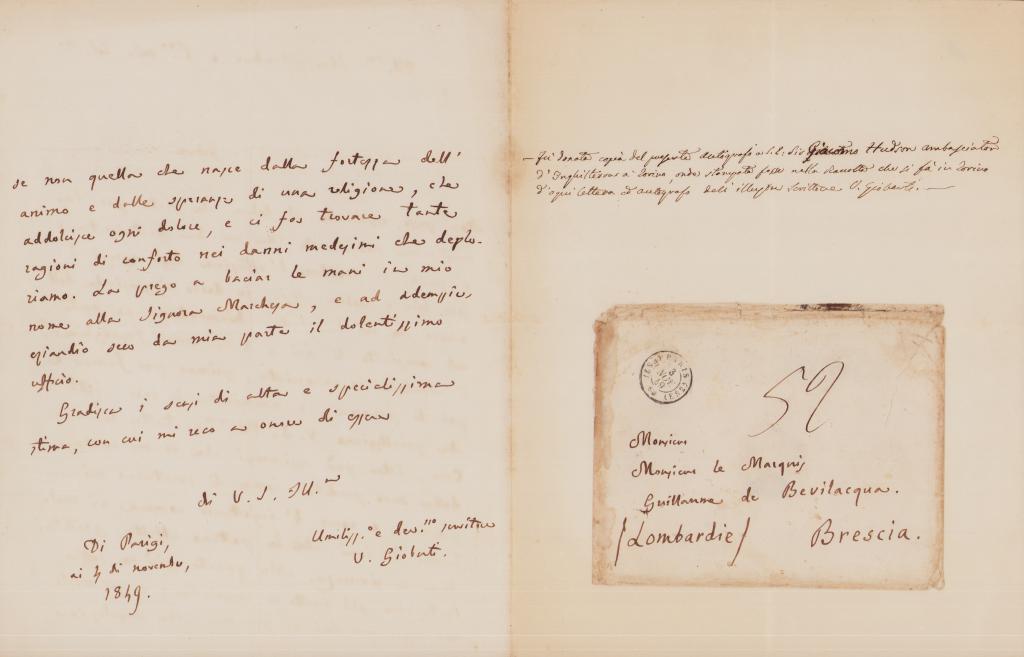 se non quella che nasce dalla fortezza dell'
animo e dalle speranze di una religione, che
addolcisce ogni dolore, e ci fa trovare tante
ragioni di conforto nei danni medesimi che deplo-
riamo. La prego a baciar le mani in mio
nome alla Signora Marchesa, e ad adempiere
eziandio seco da mia parte il dolentissimo
ufficio.
Gradisca i sensi di alta e specialissima
stima, con cui mi reco a onore di essere
di V. S. Ill.ma
Umiliss.o e dev.mo servitore
V. Gioberti.
Di Parigi,
ai 4 di novembre,
1849.
— Fu donata copia del presente autografo a S.E. Sir Giacomo Hudson ambasciatore
d'Inghilterra a Torino, onde stampata fosse nella Raccolta che si fa in Torino
d'ogni lettera ed autografo dell'illustre scrittore V. Gioberti. —
PARIS
52
Monsieur
Monsieur le Marquis
Guillaume de Bevilacqua.
(Lombardie) Brescia.